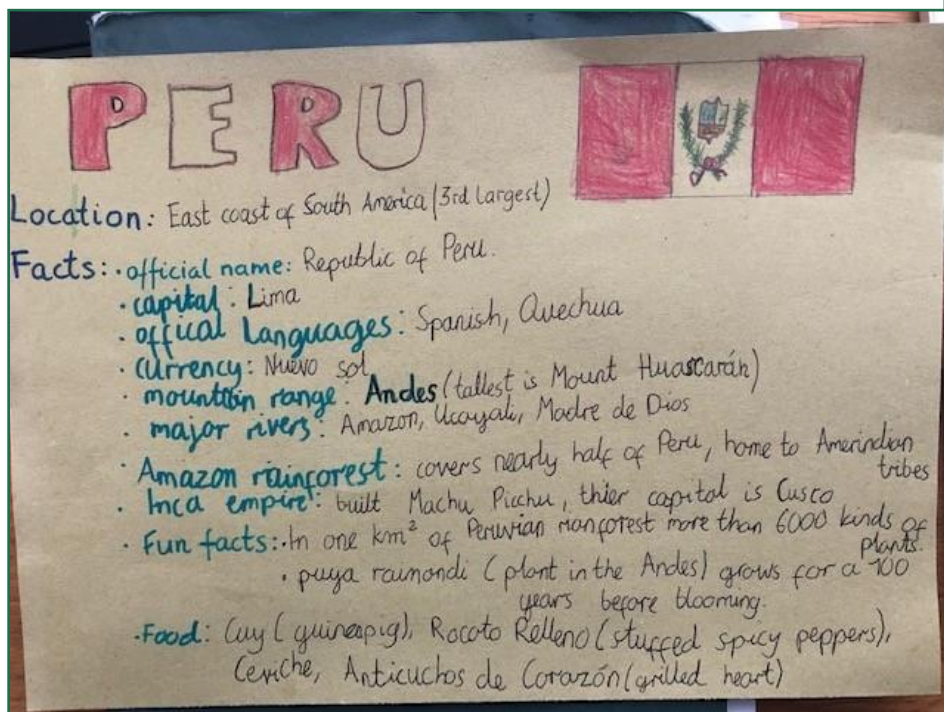 PERU
Location: East coast of South America (3rd largest)
Facts: • official name: Republic of Peru.
• capital: Lima
• offical Languages: Spanish, Quechua
• currency: Nuevo sol
• mountain range: Andes (tallest is Mount Huascarán)
• major rivers: Amazon, Ucayali, Madre de Dios
• Amazon rainforest: covers nearly half of Peru, home to Amerindian
tribes
• Inca empire: built Machu Picchu, thier capital is Cusco
• Fun facts: • In one km² of Peruvian rainforest more than 6000 kinds of
plants.
• puya raimondi (plant in the Andes) grows for a 100
years before blooming.
• Food: Cuy (guineapig), Rocoto Relleno (stuffed spicy peppers),
Ceviche, Anticuchos de Corazón (grilled heart)